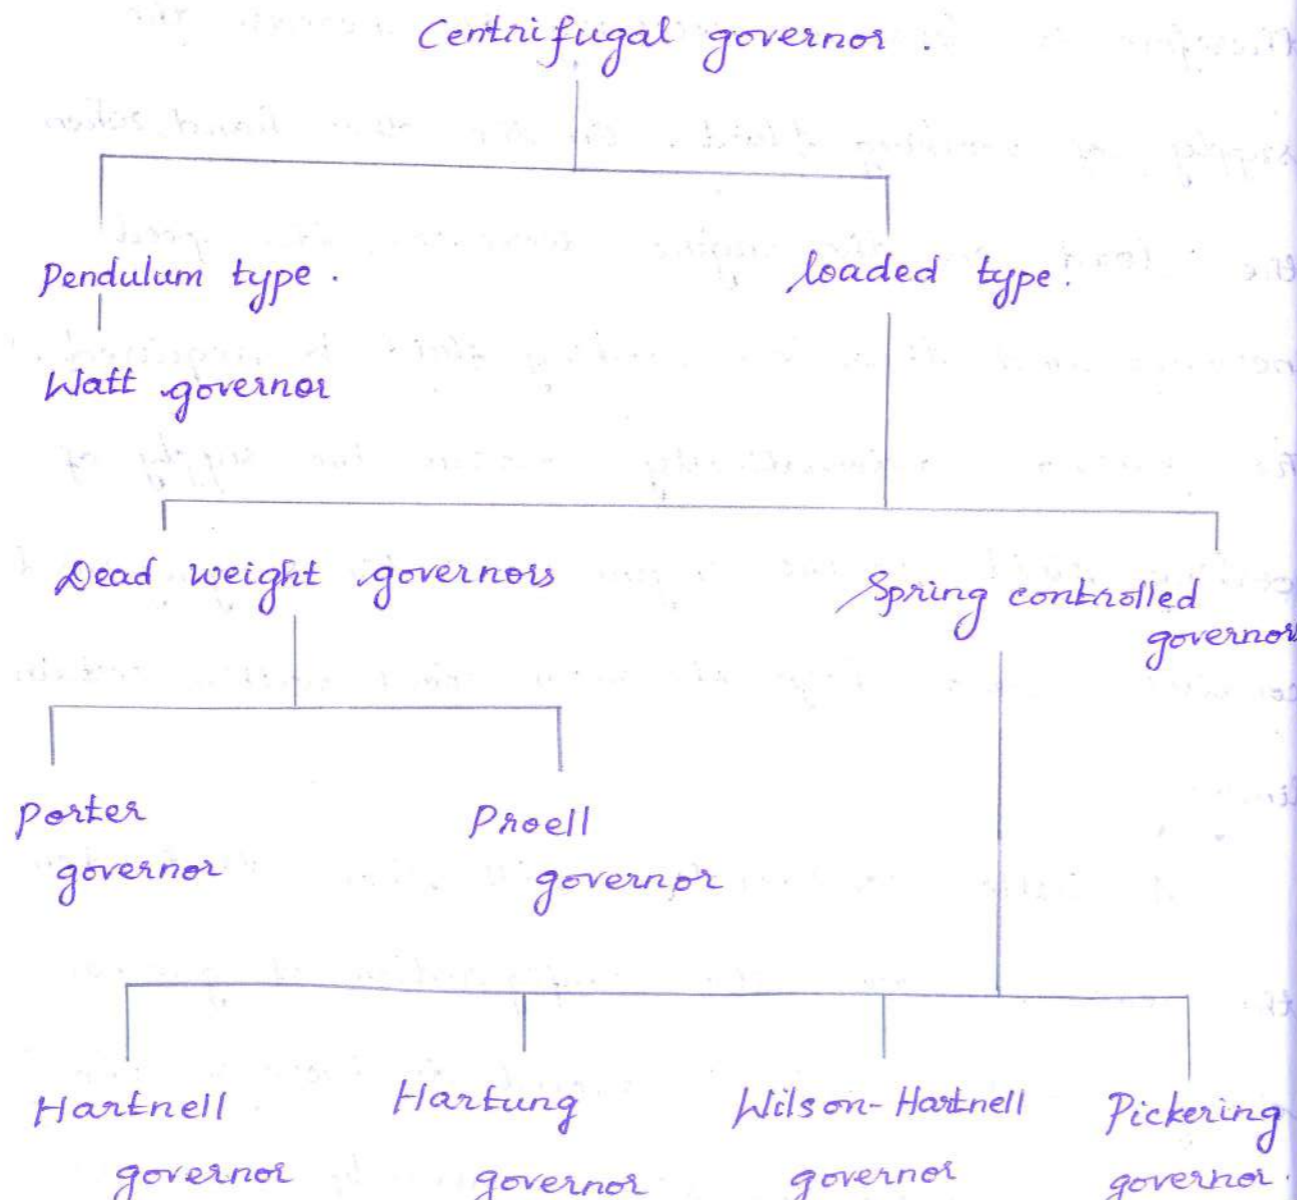 Centrifugal governor.
Pendulum type.
loaded type.
Watt governor
Dead weight governors
Spring controlled
governors
Porter
governor
Proell
governor
Hartnell
governor
Hartung
governor
Wilson-Hartnell
governor
Pickering
governor.